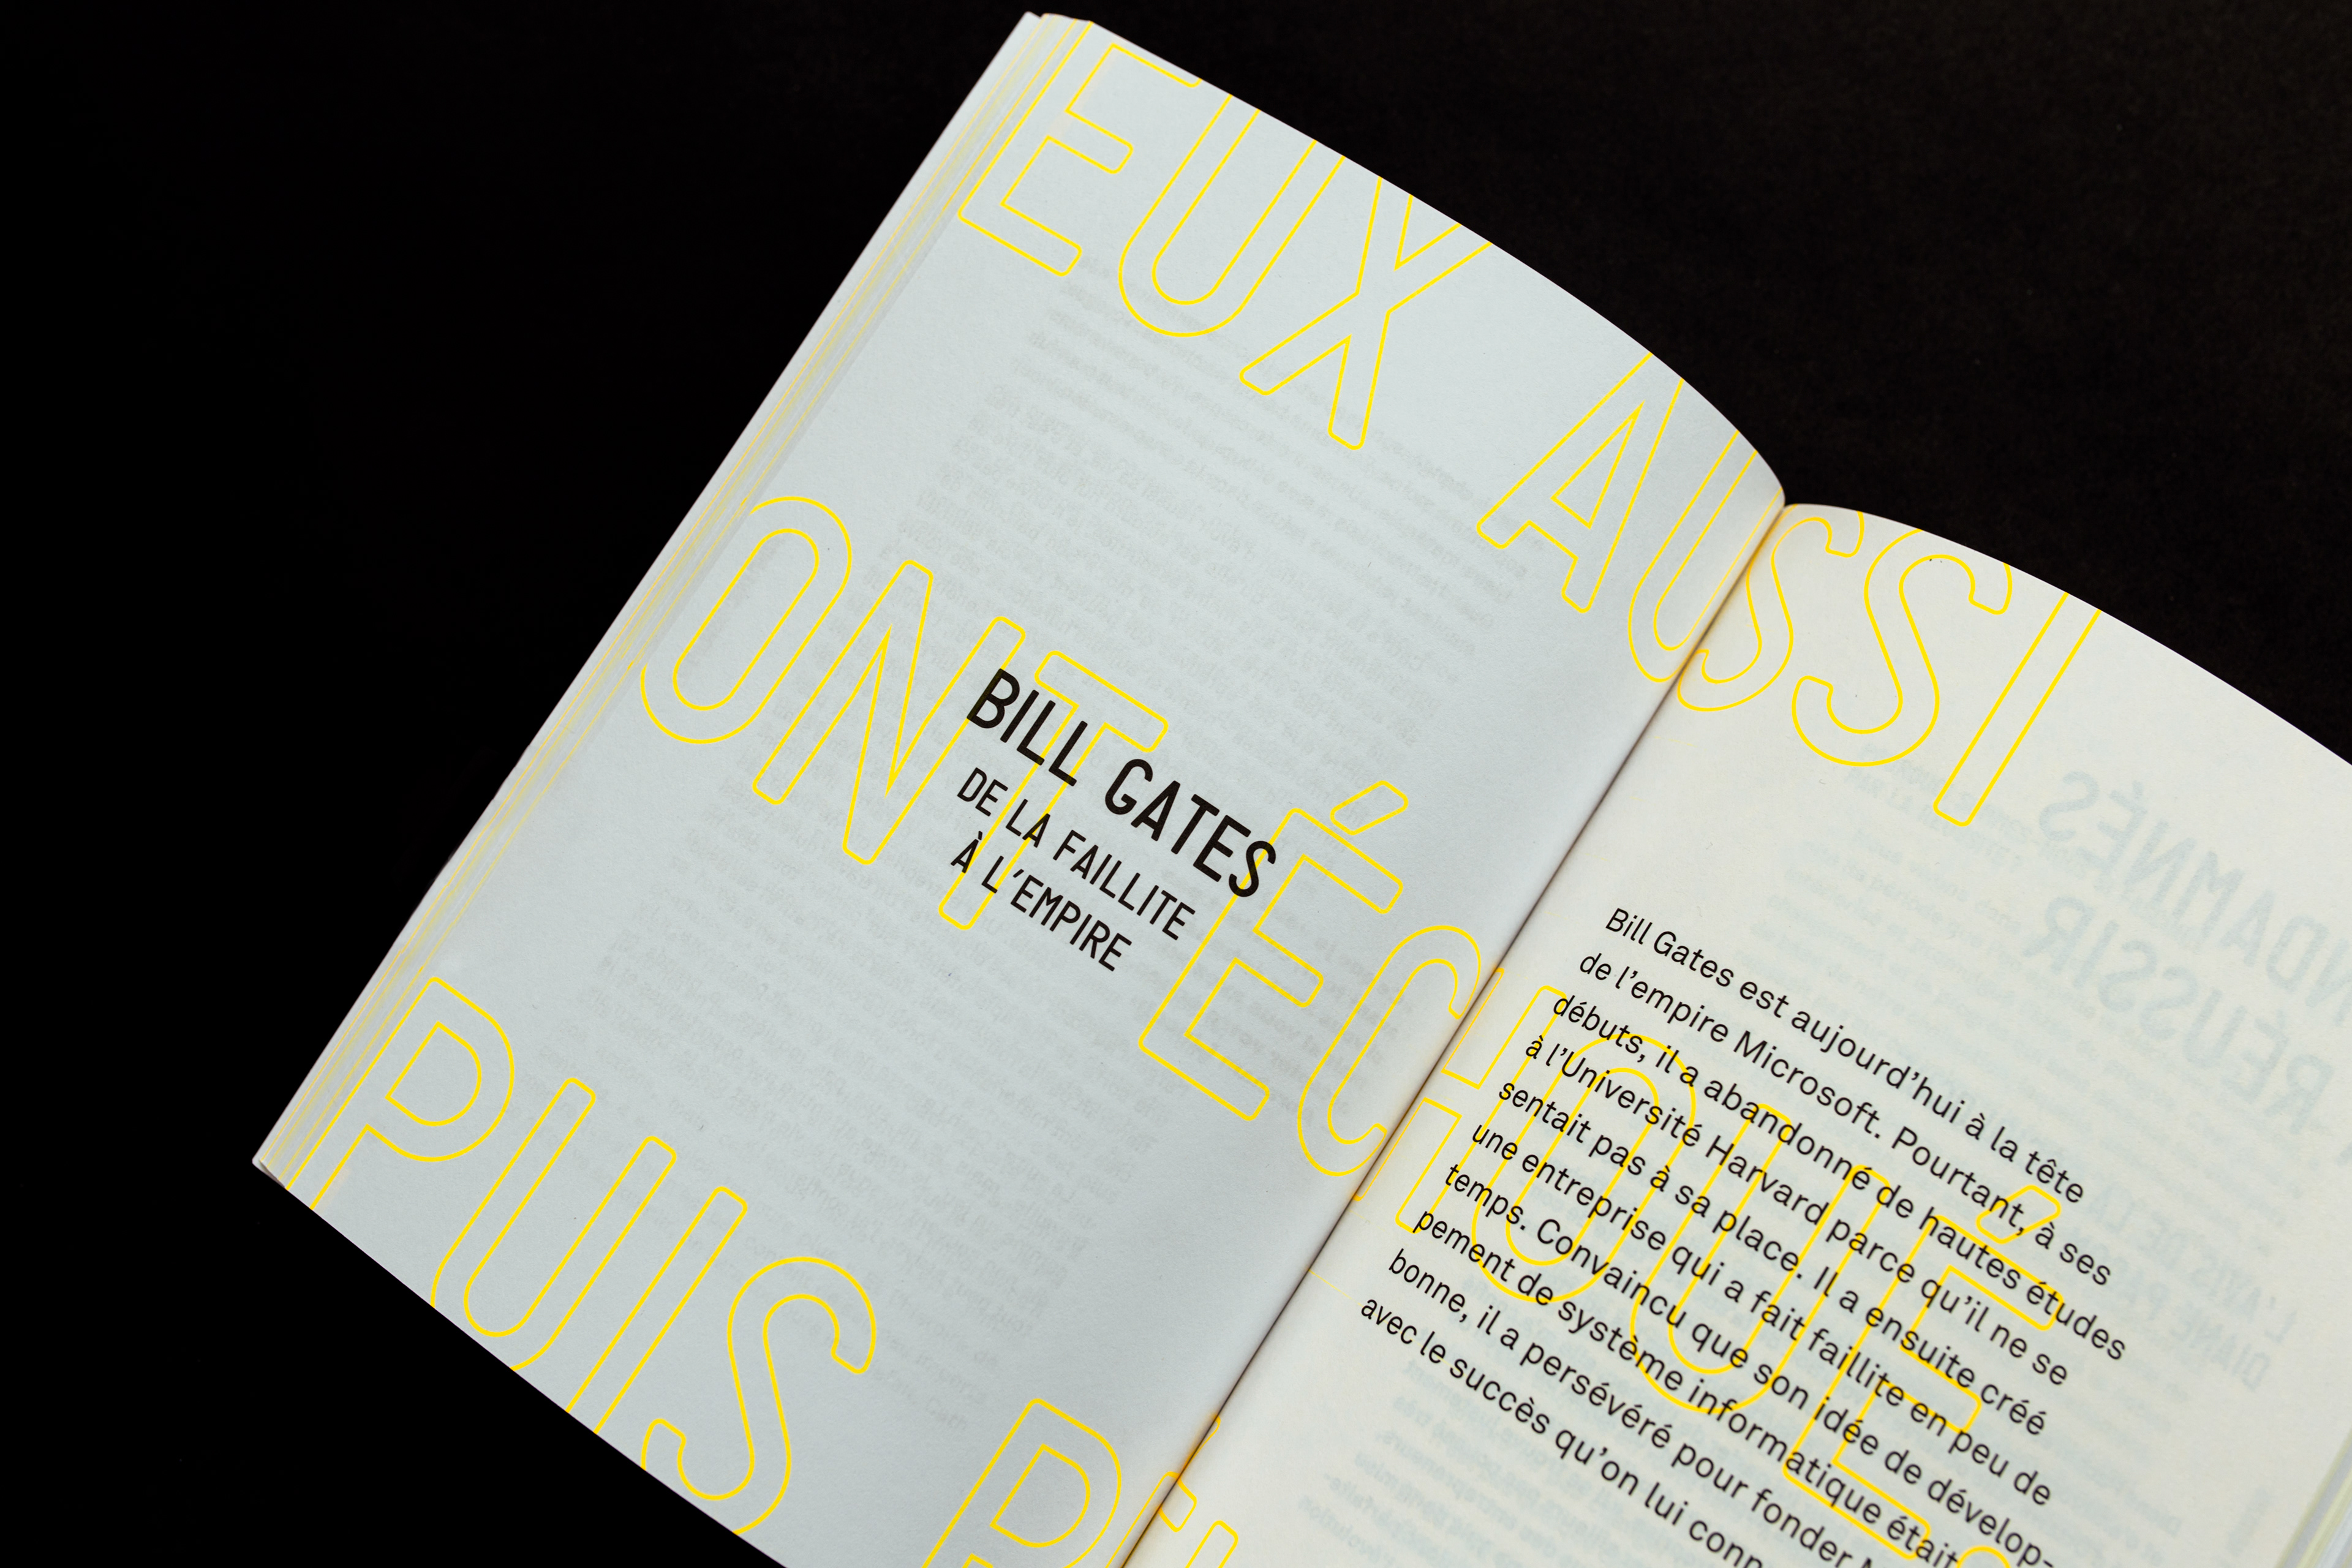 EUX AUSSI
ONT ÉCHOUÉ
PUIS
BILL GATES
DE LA FAILLITE
À L'EMPIRE
Bill Gates est aujourd'hui à la tête
de l'empire Microsoft. Pourtant, à ses
débuts, il a abandonné de hautes études
à l'Université Harvard parce qu'il ne se
sentait pas à sa place. Il a ensuite créé
une entreprise qui a fait faillite en peu de
temps. Convaincu que son idée de dévelop-
pement de système informatique était
bonne, il a persévéré pour fonder
avec le succès qu'on lui